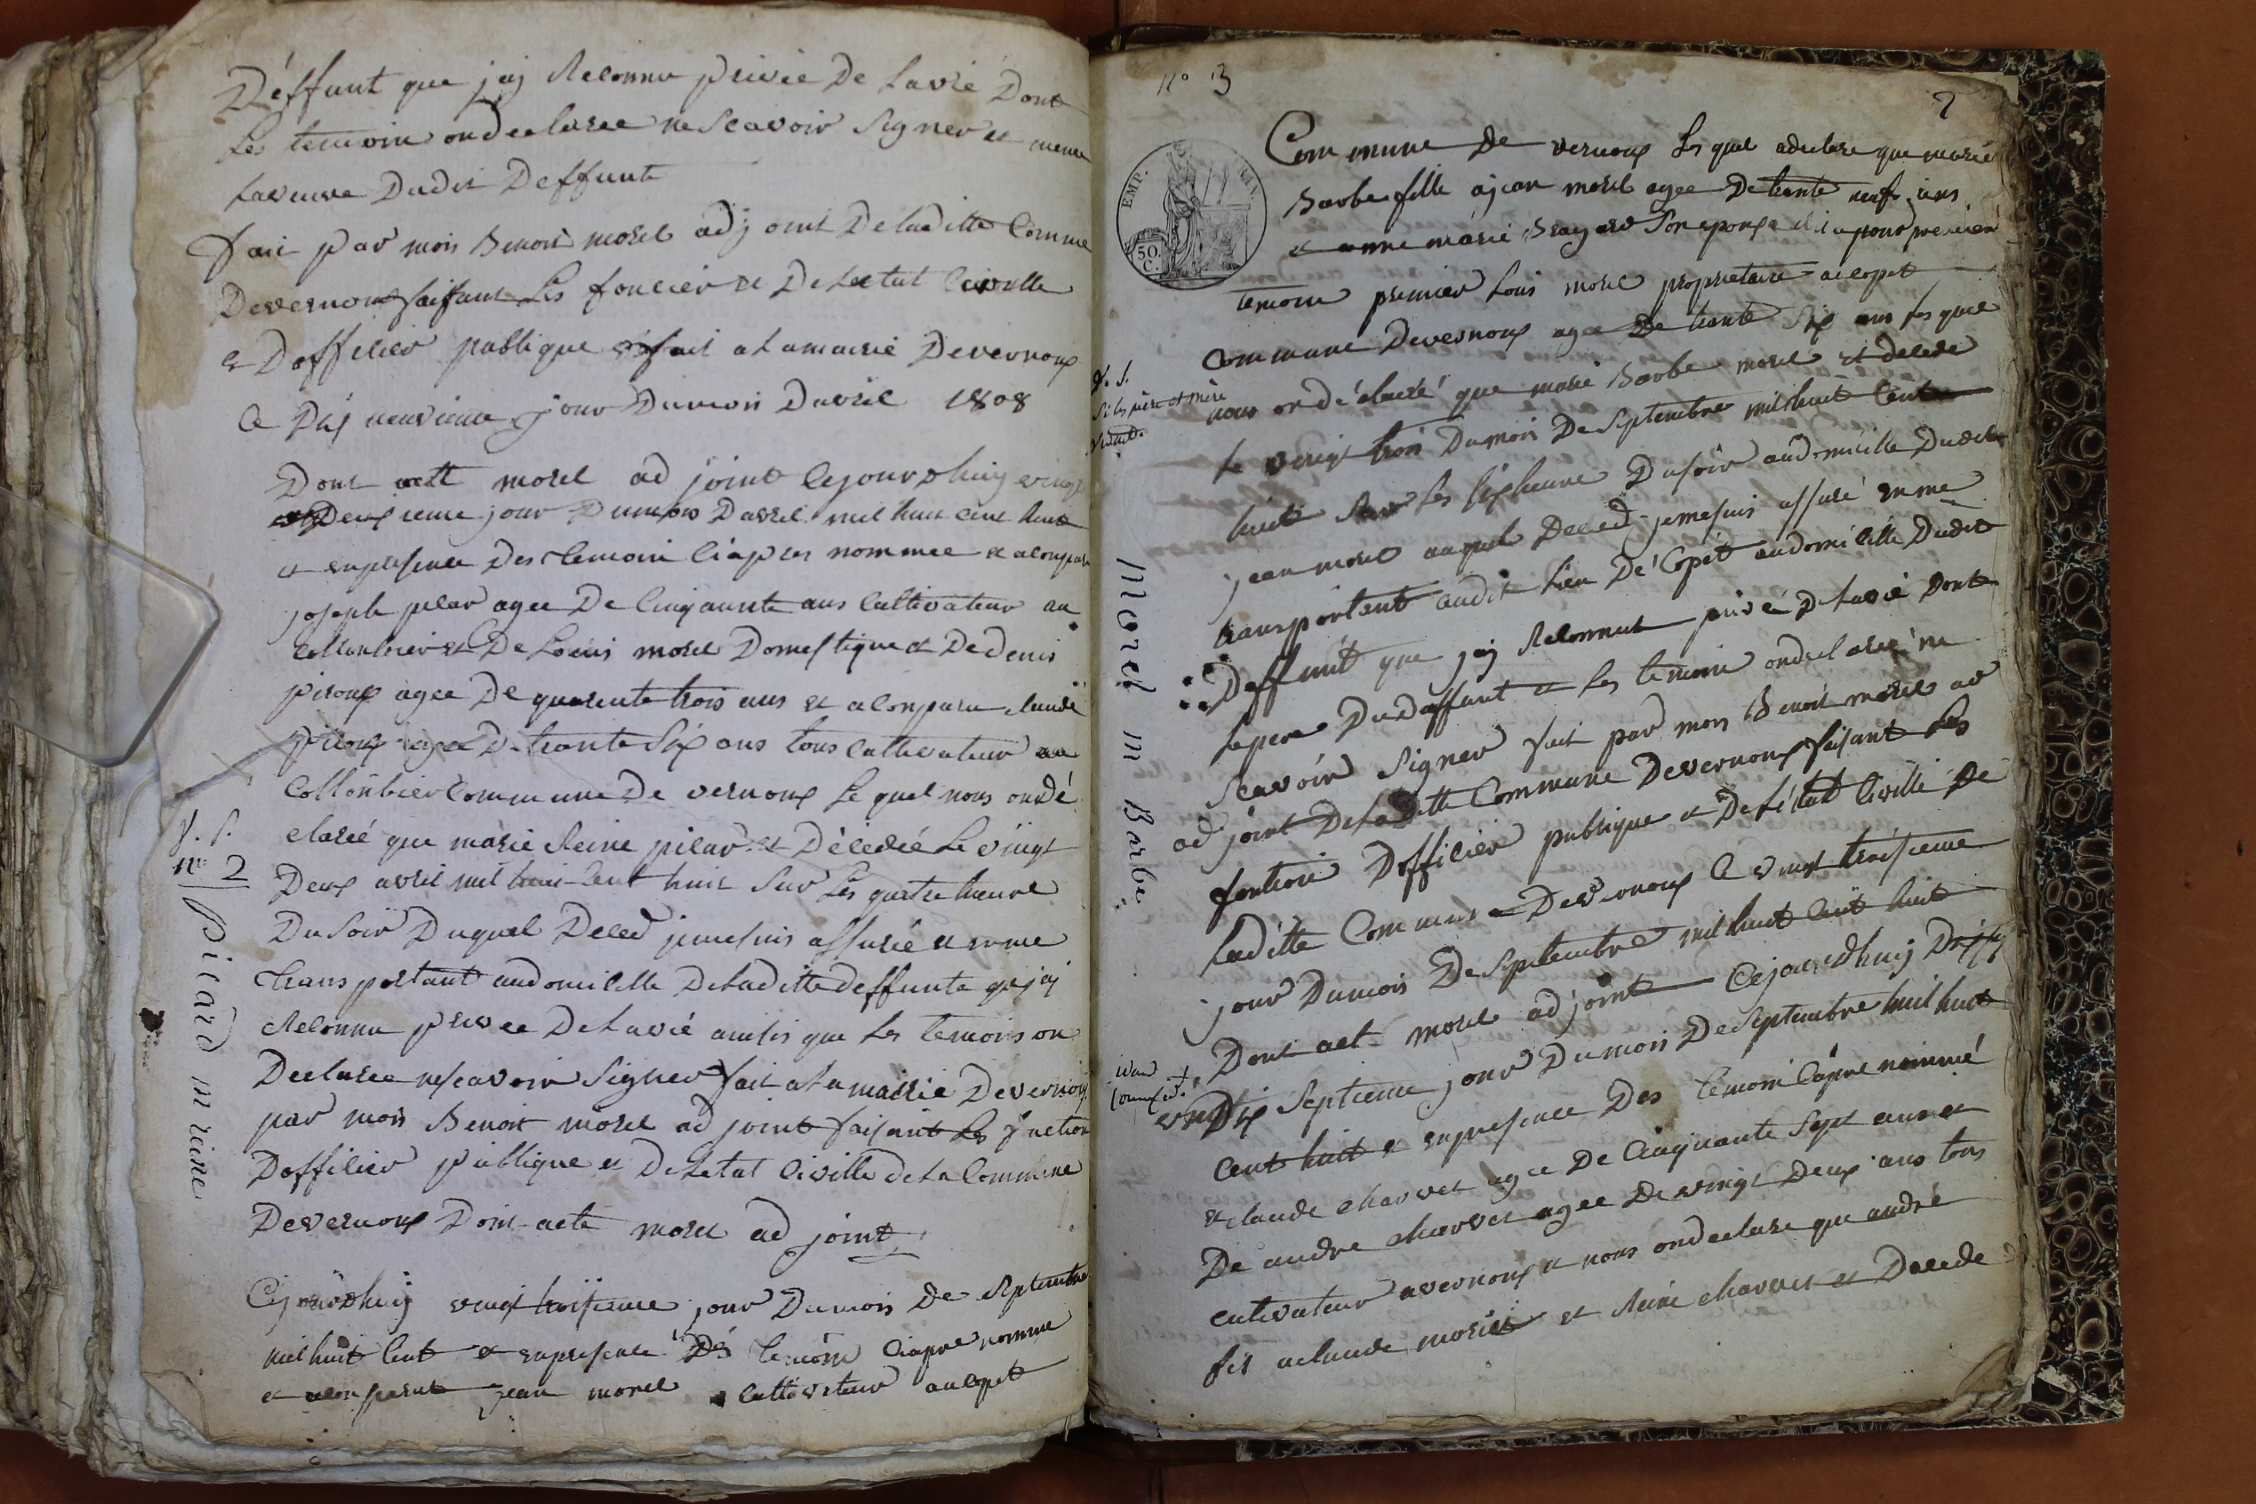 Déffunt que jaj Reconnu privée De Lavie Dont
Les temoin on declaree ne Scavoir Signer et meme
Laveuve Dudit Deffunt
fait par mois Benoit morel adjoint De laditte Comune
Devernoux faisant Les foncier et De Letat Civille
et Dofficier publique fait a La mairie Devernoux
Ce Dix neuvieme jour Dumois Davril 1808
Dont actt morel ad joint Cejourdhuy vingt
Deuxieme jour Dumois Davril mil huit cent huit
et enpresence Des temoin Ciapres nommee et a Conparu
joseph pilar agee De Cinquante ans Cultivateur au
Collonbier et De Louis morel Domestique et De denis
piroux agee De quarente trois ans et a Conparu Claude
piroux agee De trante Six ans tous Cultivateur au
Collonbier Commune De vernoux Le quel nous on dé
claréé que marie Reine pilar et Décédéé Le vingt
Deux avril mil huit Cent huit Sur Les quatre heure
Du Soir Duquel Deced jemesuis assurée et enme
transportant audomicille De Laditte deffunte que jaj
Reconnu privee De La vié ainsis que Les temoins on
Declaree ne scavoir Signer fait a La mairie Devernoux
par mois Benoit morel ad joint faisant Les fonction
Dofficier publique et De Letat Civille de La Commune
Devernoux Dont acte morel ad joint
V. S.
n° 2
Picard m reine
Cejourdhuij vingt troisieme jour Dumois De Septembre
mil huit Cent et enpresence Des temoin Ciapre nomme
et a Conparut jean morel Cultivateur au Copet
n° 3
EMP.
50
C.
Commune De vernoux Les quel a declare que marie
Barbe fille a jean morel agee De trante neuf ans
et anne marie Son epouse
temoin premier Louis morel proprietaire a Copet
Commune Devernoux agee De trante Six ans Les quel
nous on déclaré que marie Barbe morel et decede
Le vingt trois Dumois De Septembre mil huit Cent
huit Sur Les Six heure Du soir audomicille Dudit
jean morel auquel Deced jemesuis assuré enme
transportent audit Lieu De Copet audomicille Dudit
Deffunt que jaj Reconnut privé De Lavie Dont
Le pere Du Deffunt et Les temoin on declareé ne
Scavoir Signer fait par mois Benoit morel ad
ad joint De Laditte Commune Devernoux faisant Les
fontion Dofficier publique et De Létat Civille De
Laditte Commune Devernoux Ce vingt troisieme
jour Dumois De Septembre mil huit Cent huit
Dont act morel ad joint Cejourdhuij
vingt Dix Septieme jour Dumois De Septembre mil huit
Cent huit et enpresence Des temoin Ciapre nommé
et Claude charvet agee De Cinquante Sept ans et
De andre charvet agee De vingt Deux ans tous
Cultivateur a vernoux et nous on declare que andré
fis a Claude et Reine charvet et Decede
V. S.
Si les père et mère
Morel m Barbe